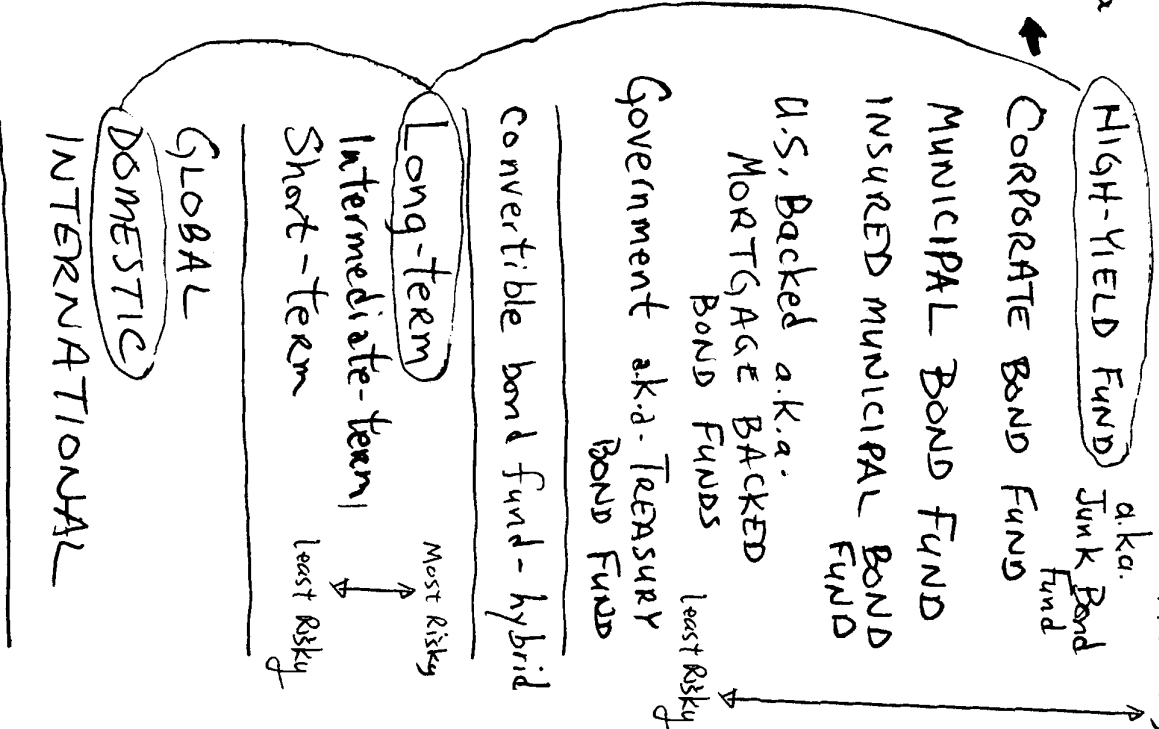 HIGH-YIELD FUND a.k.a.
Junk Bond
Fund
CORPORATE BOND FUND
MUNICIPAL BOND FUND
INSURED MUNICIPAL BOND
FUND
U.S. Backed a.k.a.
MORTGAGE BACKED
BOND FUNDS
Government a.k.a. TREASURY
BOND FUND
Least Risky
Convertible bond fund - hybrid
Long-term Most Risky
Intermediate-term
Short-term Least Risky
GLOBAL
DOMESTIC
INTERNATIONAL